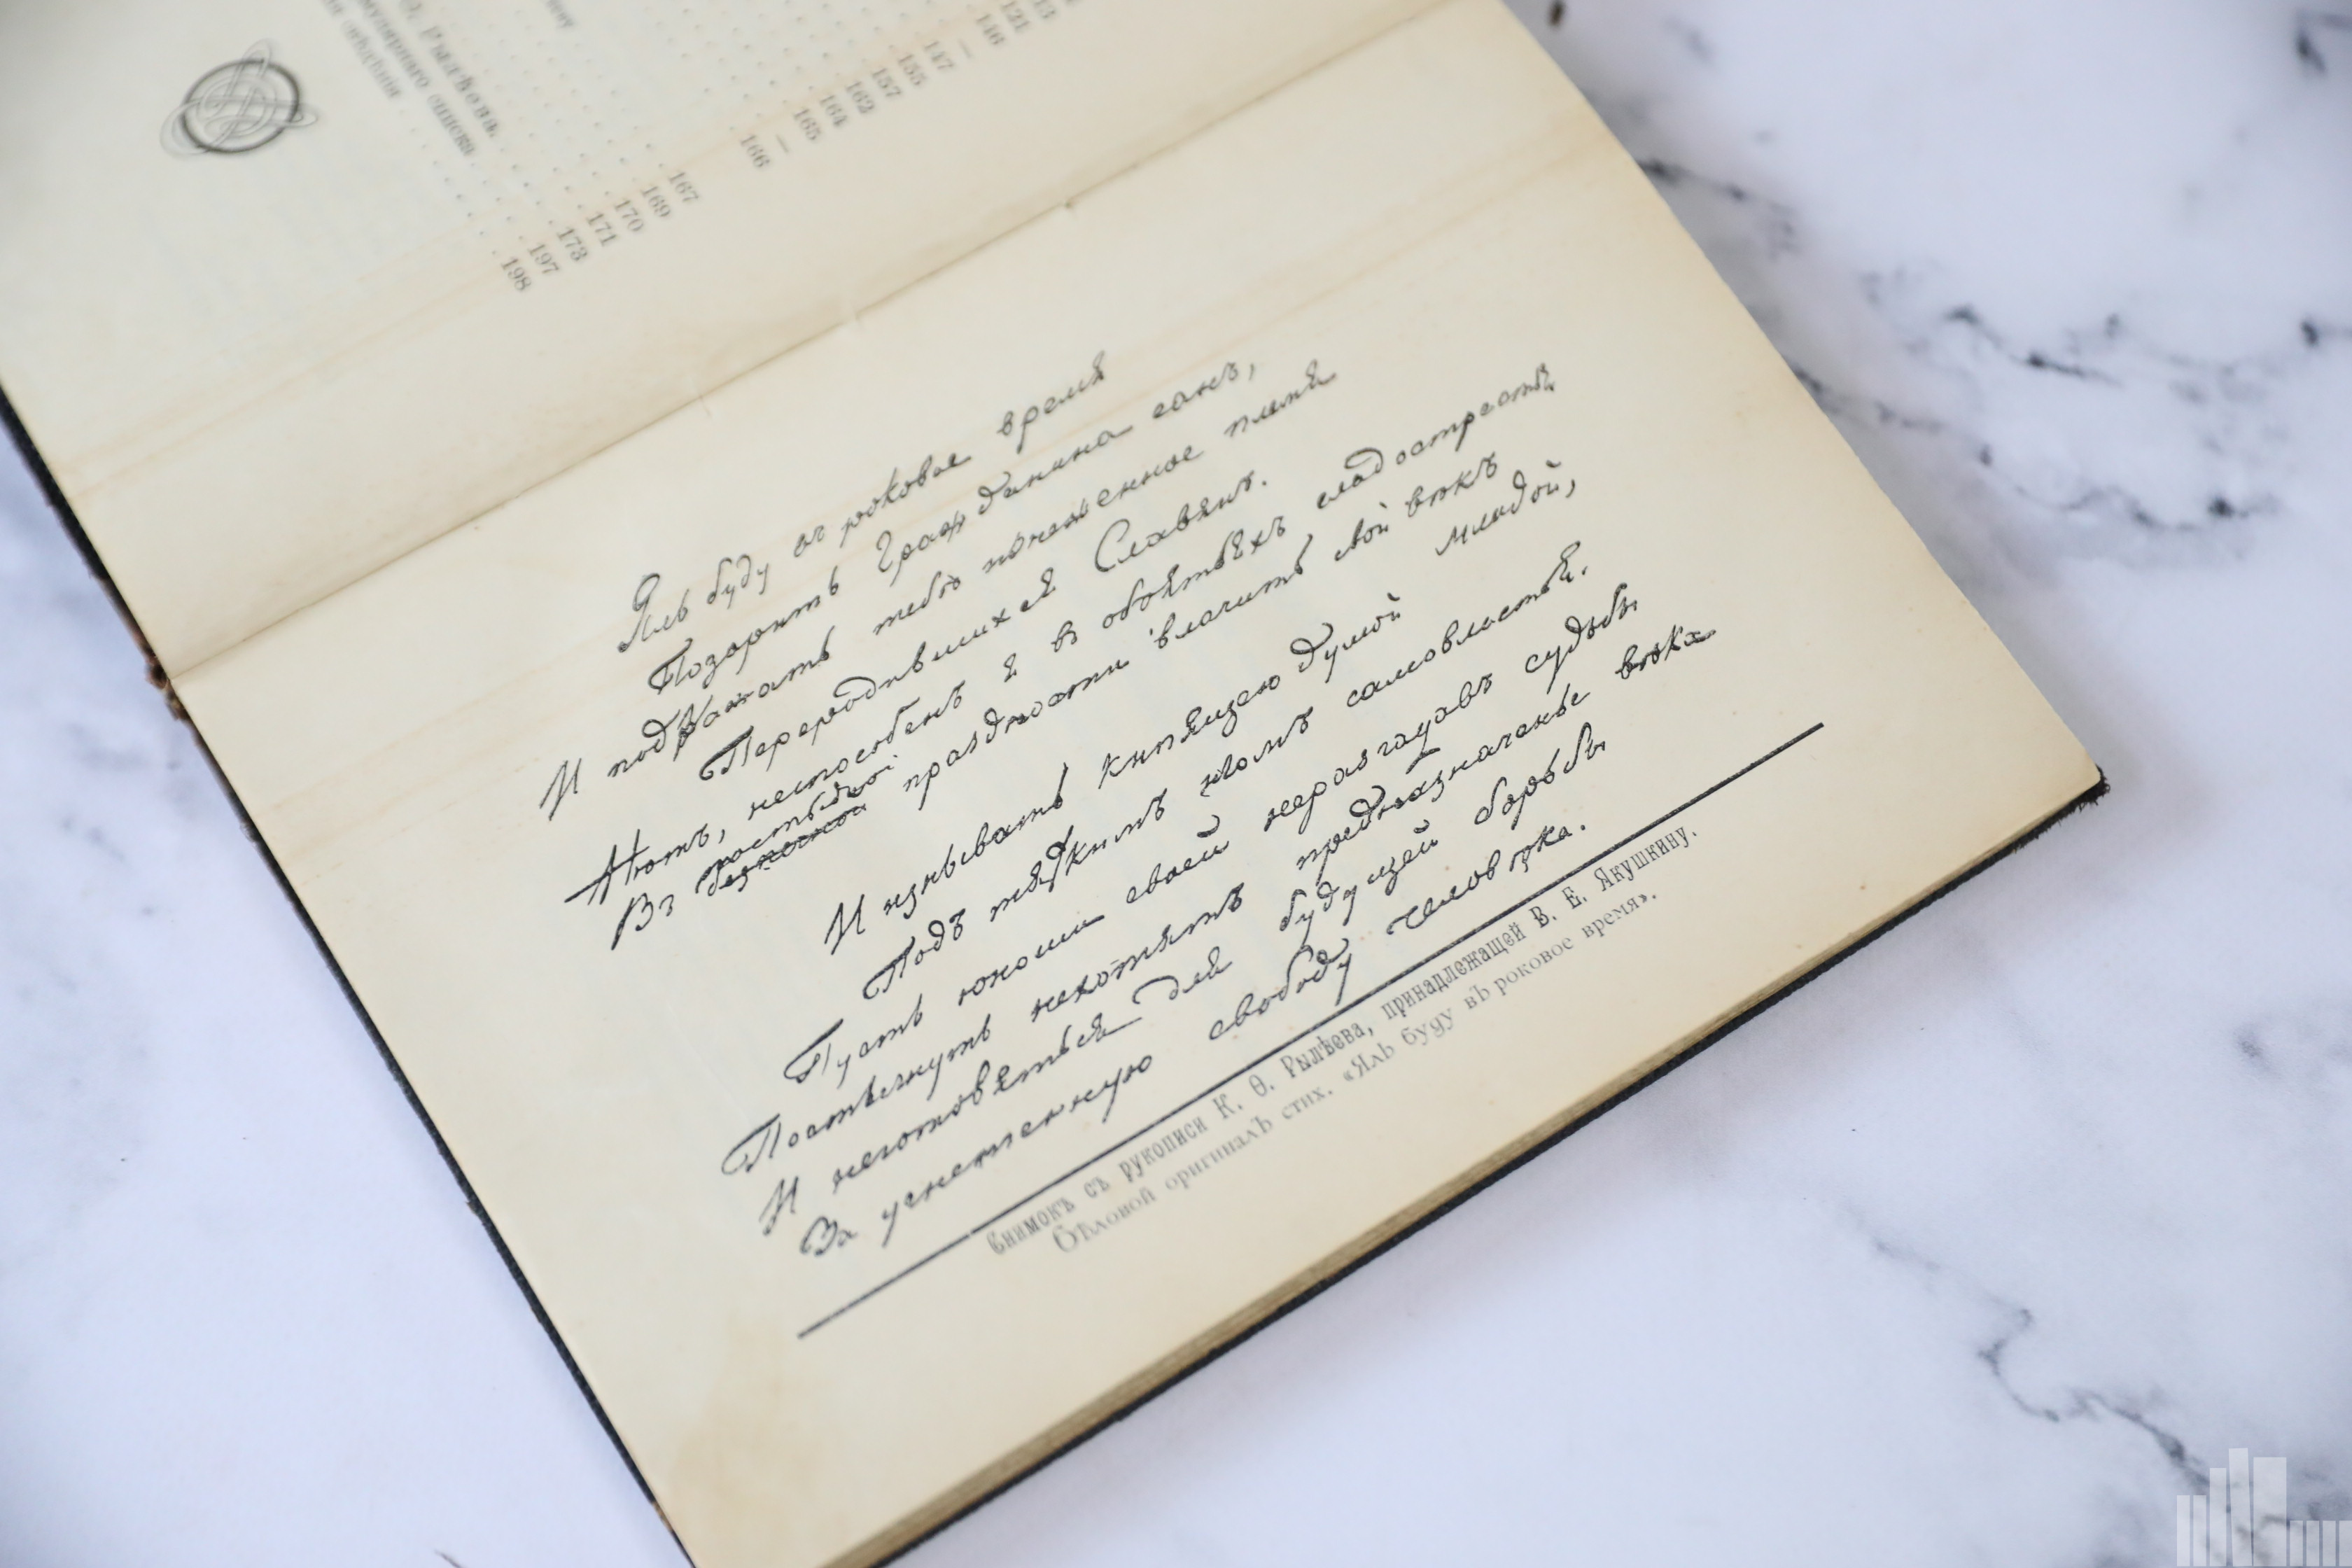 Рылѣева.
198
197
173
171
170
169
167
166
—
165
164
162
157
155
147
—
146
Яль буду въ роковое время
Позорить Гражданина санъ,
И подражать тебѣ изнеженное племя
Переродившихся Славянъ.
Нѣтъ, неспособенъ я въ объятьяхъ сладострастья,
постыдной
Въ праздности влачить свой вѣкъ
младой,
И изнывать кипящею душой
Подъ тяжкимъ игомъ самовластья.
Пусть юноши своей неразгадавъ судьбы
Постигнуть нехотятъ предназначенье вѣка
И неготовяться для будущей борьбы
За угнетенную свободу человѣка.
Снимокъ съ рукописи К. Ѳ. Рылѣева, принадлежащей В. Е. Якушкину.
Бѣловой оригиналъ стих. «Яль буду въ роковое время».